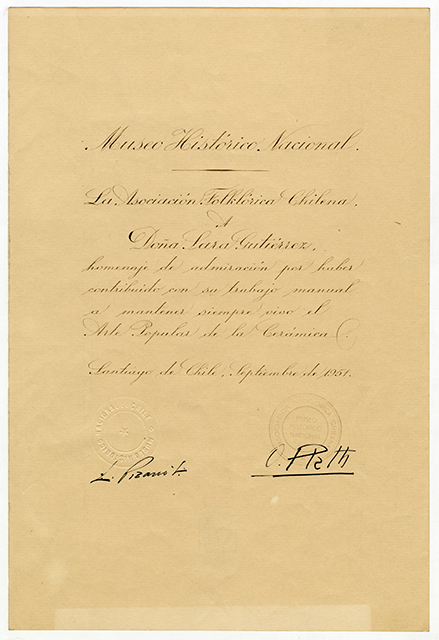 Museo Histórico Nacional.
La Asociación Folklórica Chilena.
A
Doña Sara Gutiérrez,
homenaje de admiración por haber
contribuido con su trabajo manual
a mantener siempre vivo el
Arte Popular de la Cerámica.
Santiago de Chile, Septiembre de 1951.